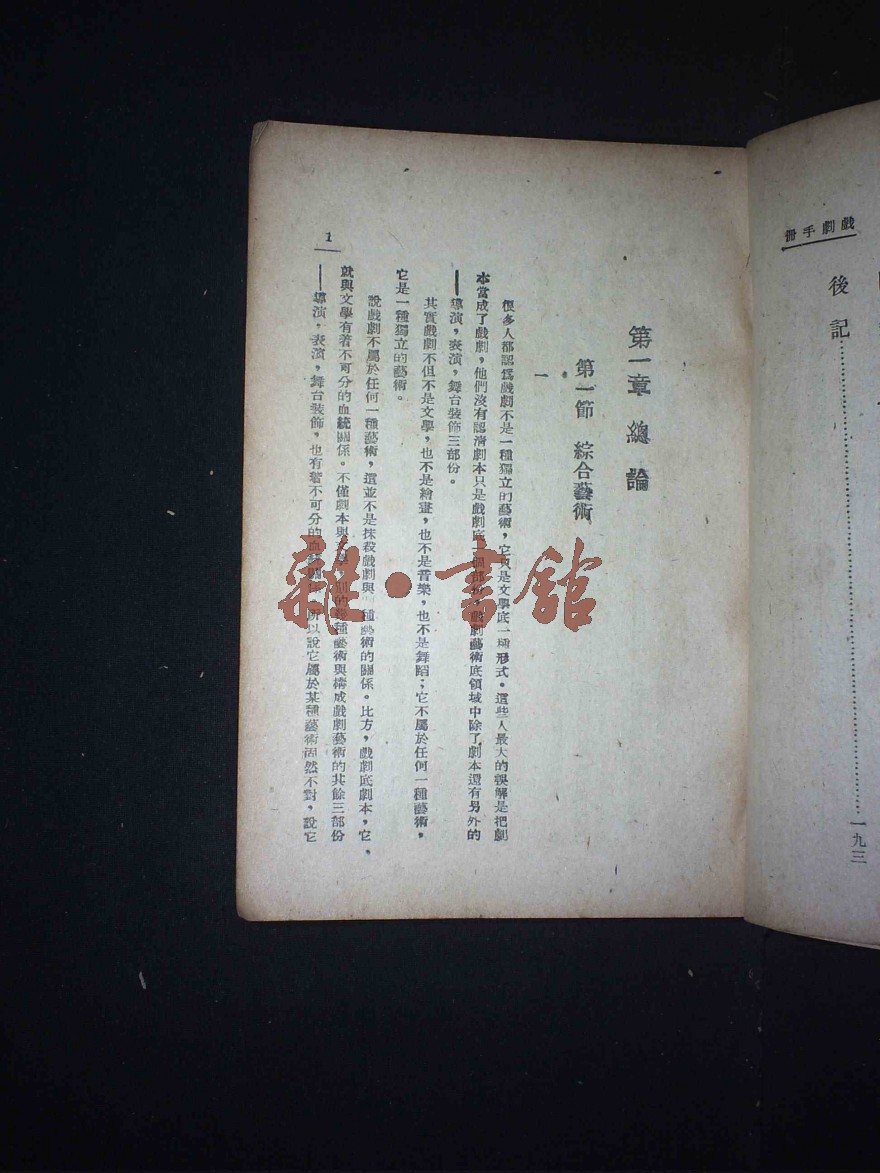 戲劇手冊
後記……………………………………一九三
第一章 總論
第一節 綜合藝術
一
很多人都認爲戲劇不是一種獨立的藝術,它只是文學底一種形式。這些人最大的誤解是把劇
本當成了戲劇,他們沒有認清劇本只是戲劇底一個部份,戲劇藝術底領域中除了劇本還有另外的
——導演,表演,舞台裝飾三部份。
其實戲劇不但不是文學,也不是繪畫,也不是音樂,也不是舞蹈;它不屬於任何一種藝術,
它是一種獨立的藝術。
說戲劇不屬於任何一種藝術,這並不是抹殺戲劇與種藝術的關係。比方,戲劇底劇本,它,
就與文學有着不可分的血統關係。不僅劇本與文學,別的種藝術與構成戲劇藝術的其餘三部份
——導演,表演,舞台裝飾,也有着不可分的血統關係,所以說它屬於某種藝術固然不對,說它
1
雜·書館